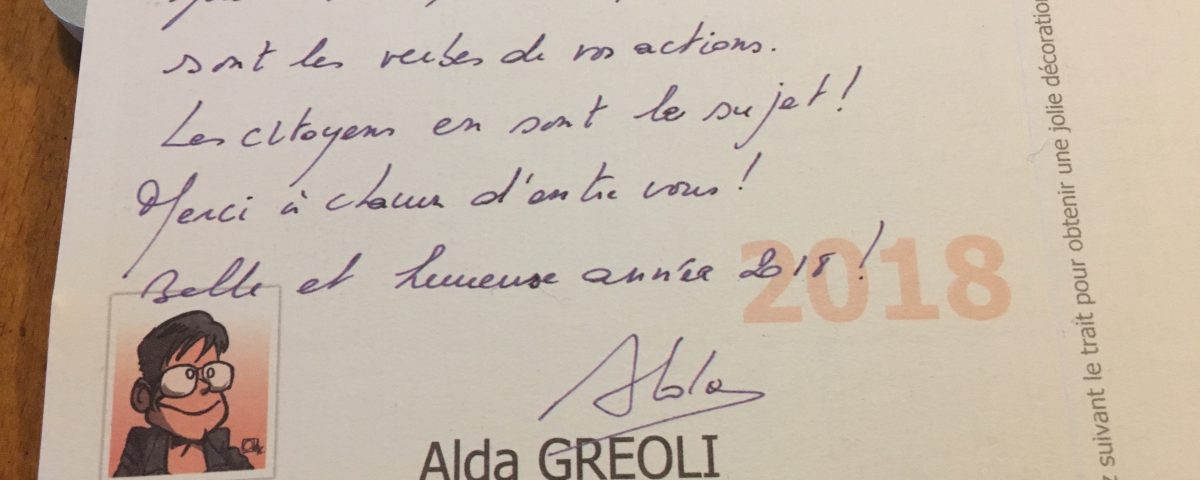 sont les verbes de vos actions.
Les citoyens en sont le sujet!
Merci à chacun d'entre vous!
Belle et heureuse année 2018!
2018
Alda
Alda GREOLI
suivant le trait pour obtenir une jolie décoration